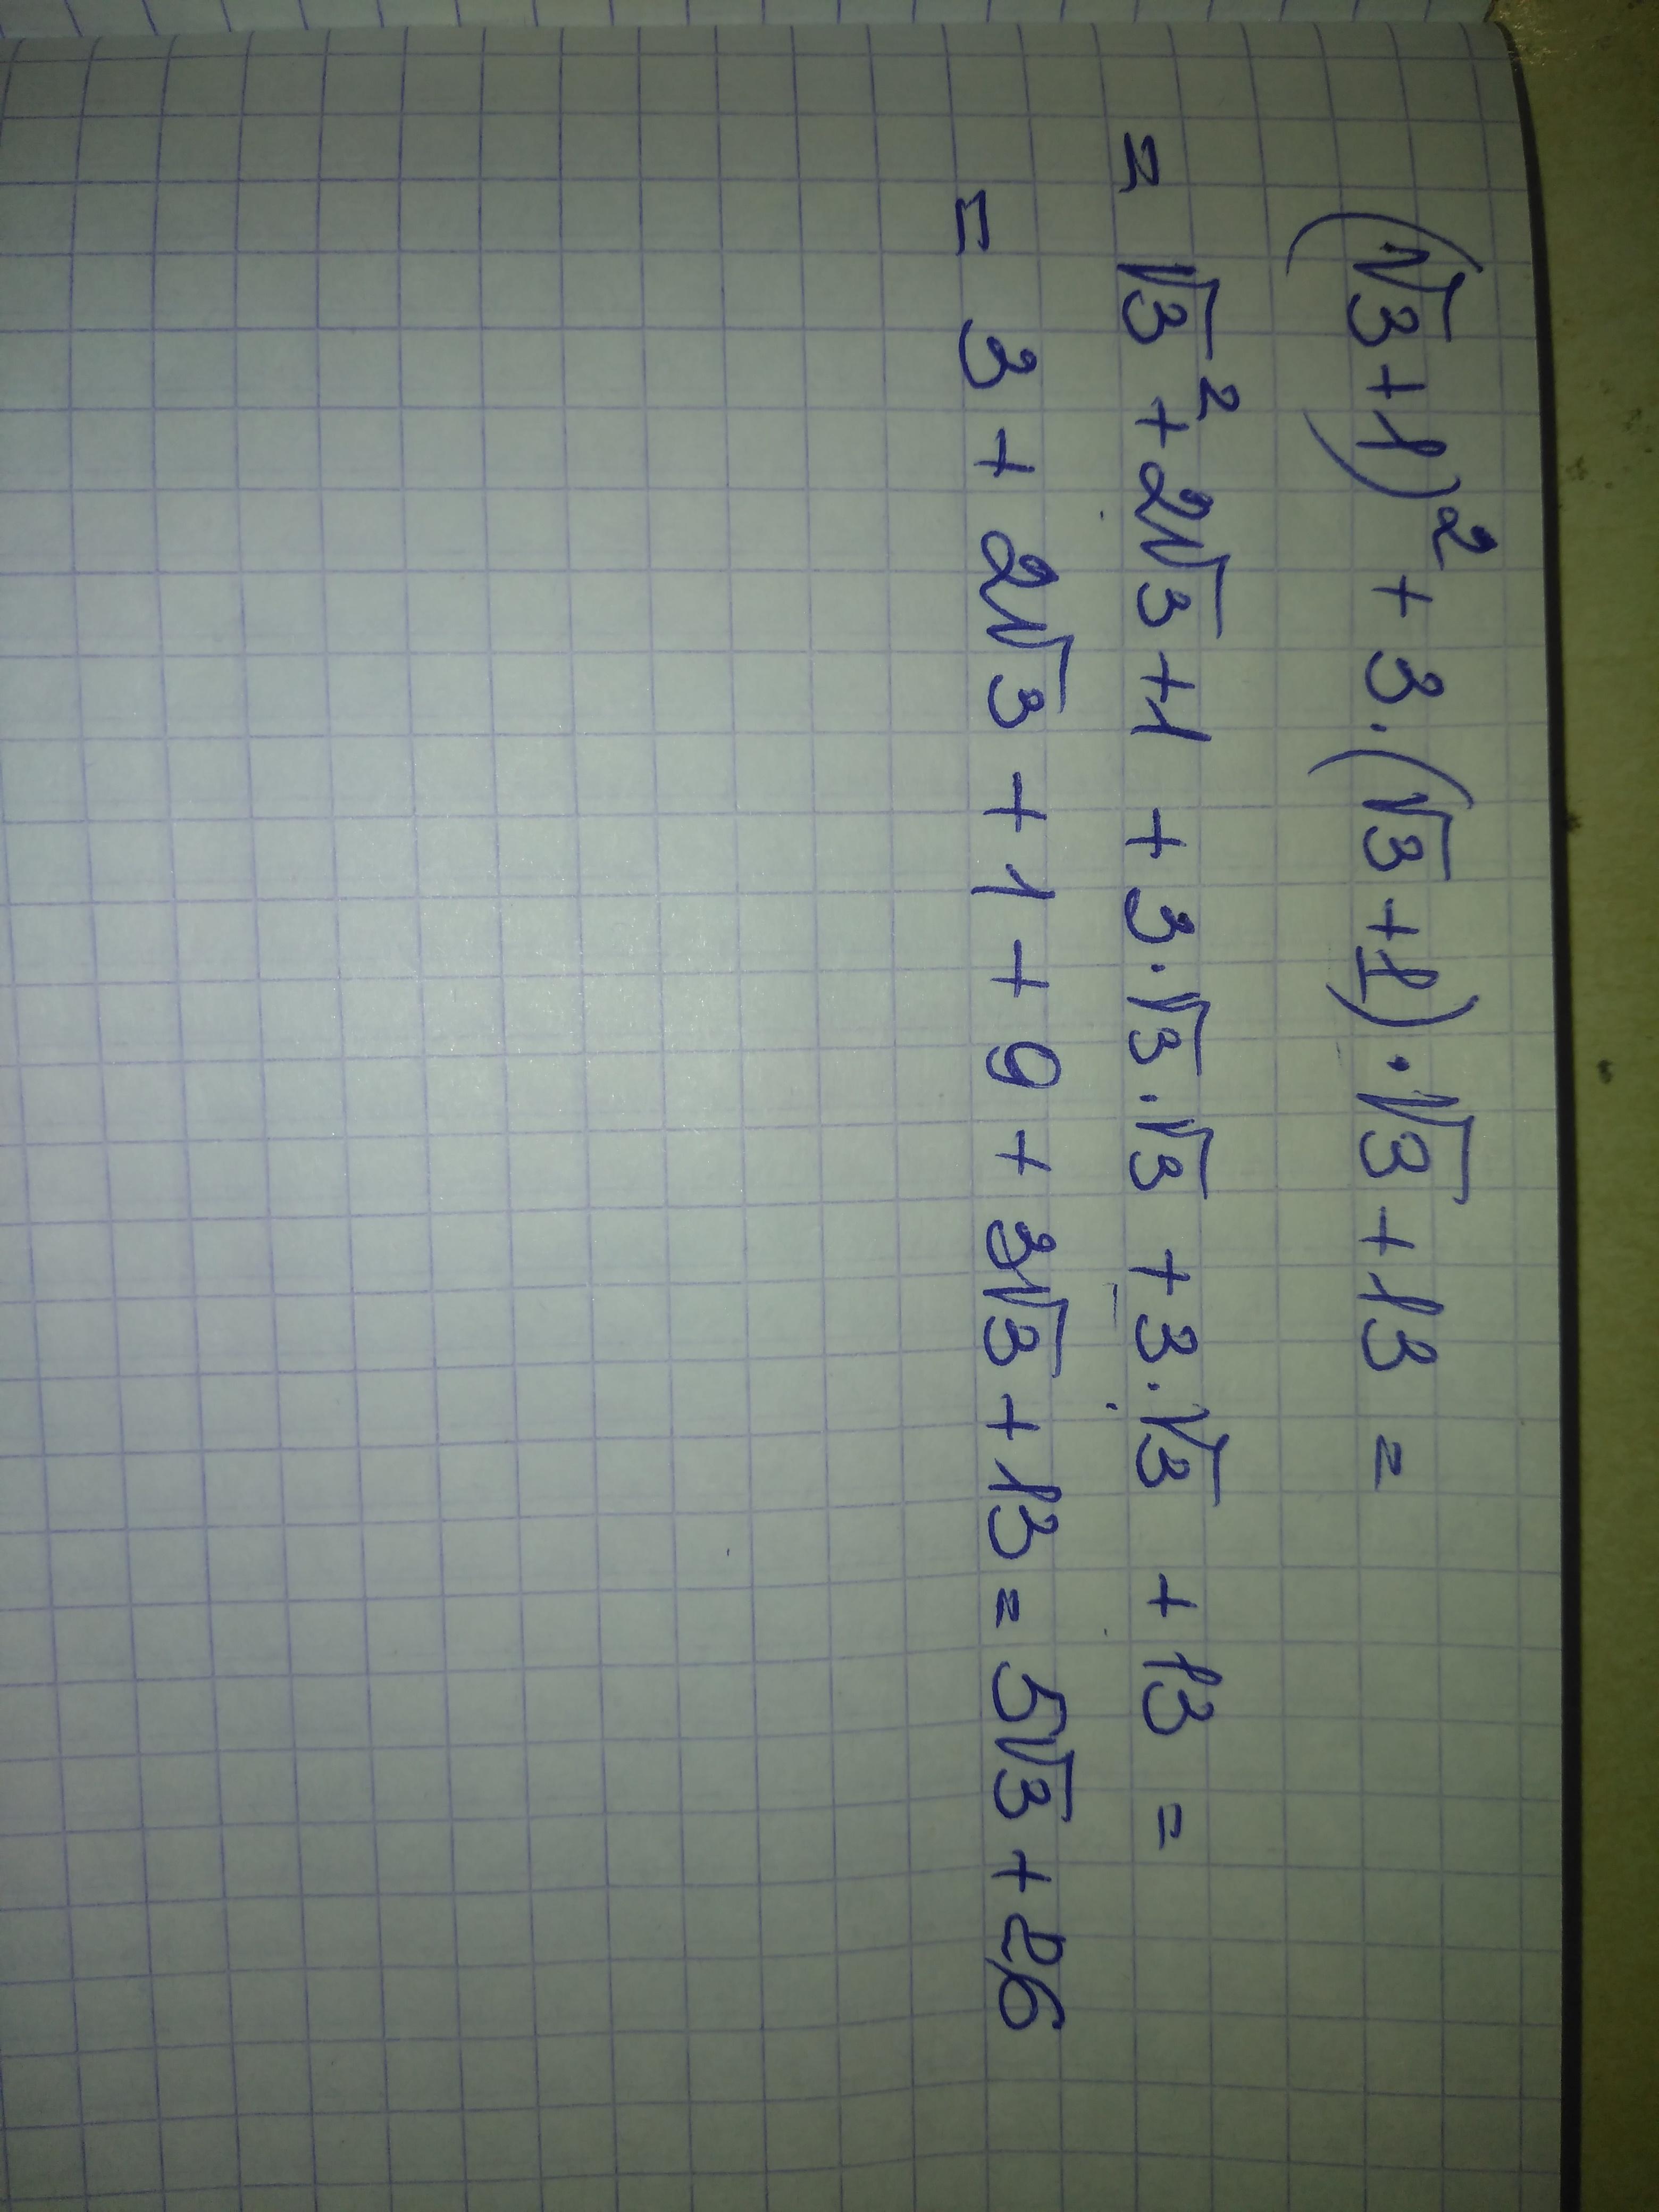 (√3+1)² + 3·(√3+1)·√3+13 =
= √3² + 2√3+1 + 3·√3·√3 + 3·√3 + 13 =
= 3 + 2√3 + 1 + 9 + 3√3 + 13 = 5√3 + 26